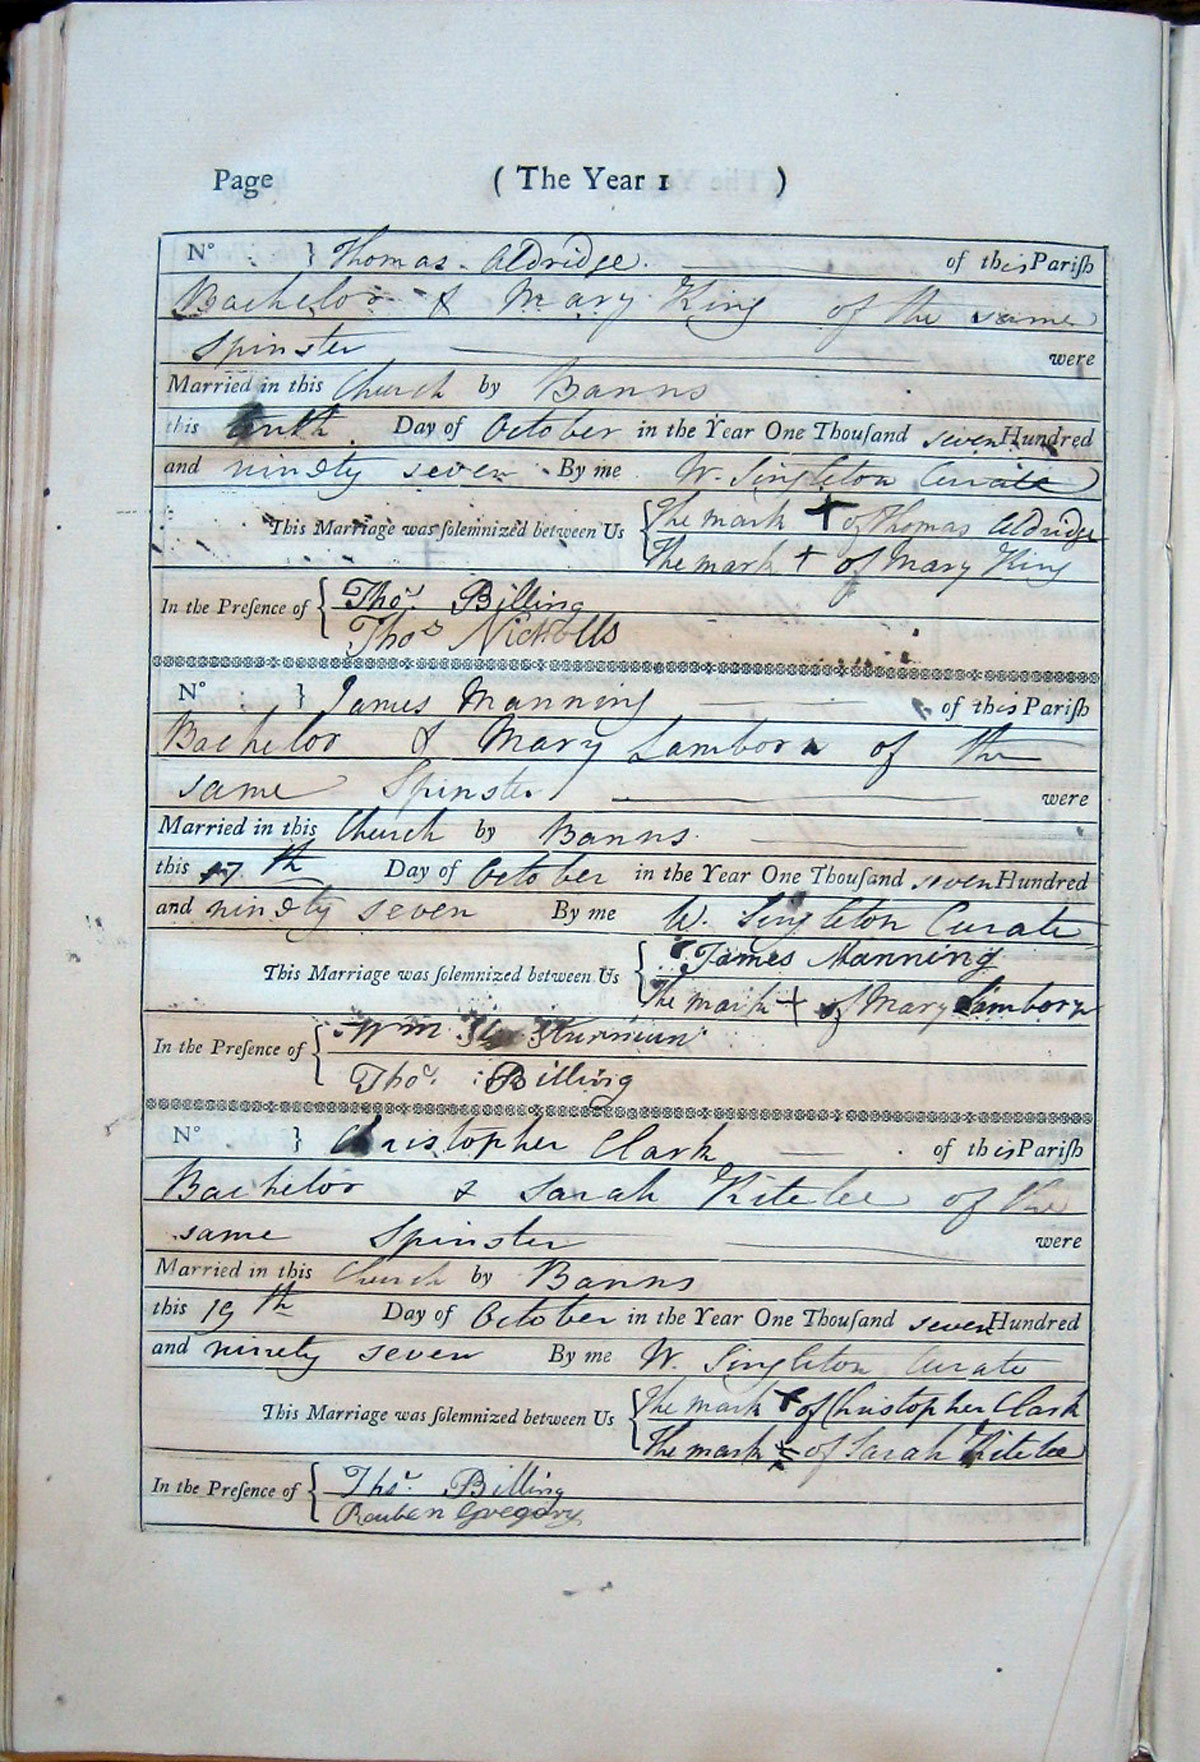 Page ( The Year 1 )
No } Thomas Aldridge. of this Pariſh
Bachelor & Mary King of the same
Spinster were
Married in this Church by Banns
this tenth Day of October in the Year One Thouſand seven Hundred
and ninety seven By me W. Singleton Curate
This Marriage was ſolemnized between Us { The mark + of Thomas Aldridge
The mark + of Mary King
In the Preſence of { Thos. Billing
Thos Nicholls
No } James Manning of this Pariſh
Bachelor & Mary Lamborn of the
same Spinster were
Married in this Church by Banns
this 17th Day of October in the Year One Thouſand seven Hundred
and ninety seven By me W. Singleton Curate
This Marriage was ſolemnized between Us { James Manning
The mark + of Mary Lamborn
In the Preſence of { Wm
Thos. Billing
No } Christopher Clark of this Pariſh
Bachelor & Sarah Kitelee of the
same Spinster were
Married in this Church by Banns
this 19th Day of October in the Year One Thouſand seven Hundred
and ninety seven By me W. Singleton Curate
This Marriage was ſolemnized between Us { The mark + of Christopher Clark
The mark + of Sarah Kitelee
In the Preſence of { Thos. Billing
Reuben Gregory